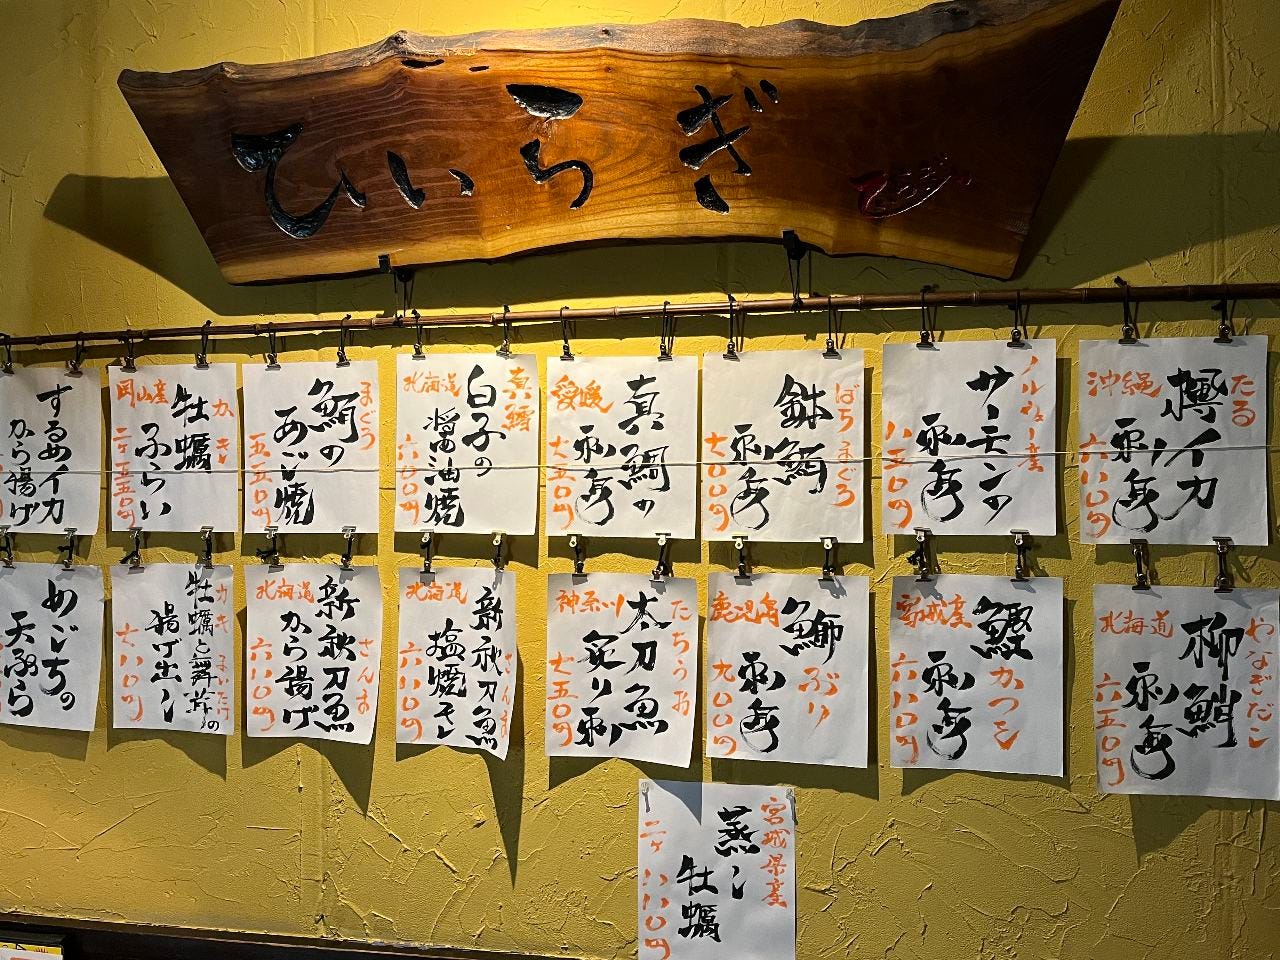 ひいらぎ
ひいらぎ
たる
樽イカ
刺身
沖縄
六八〇円
ノルウェー産
サーモンの
刺身
八五〇円
ばちまぐろ
鉢鮪
刺身
七〇〇円
真鯛の
刺身
愛媛
七五〇円
真鱈
白子の
醤油焼
北海道
六〇〇円
まぐろ
鮪の
あご焼
五五〇円
かき
牡蠣
ふらい
岡山産
二ヶ五五〇円
するめイカ
から揚げ
やなぎだこ
柳鮹
刺身
北海道
六五〇円
鰹
かつを
刺身
宮城産
六八〇円
鰤
ぶり
刺身
鹿児島
九〇〇円
たちうお
太刀魚
炙り刺
神奈川
七五〇円
さんま
新秋刀魚
塩焼き
北海道
六八〇円
さんま
新秋刀魚
から揚げ
北海道
六八〇円
カキ まいたけ
牡蠣と舞茸の
揚げ出し
七八〇円
めごちの
天ぷら
宮城県産
蒸し
牡蠣
二ヶ 八八〇円